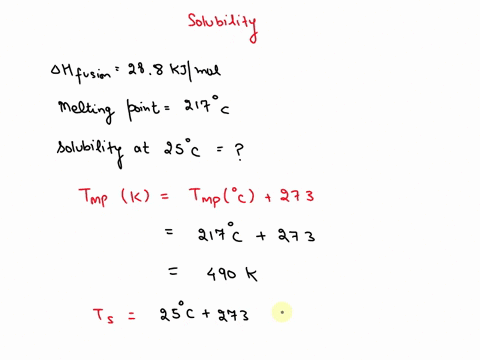 Solubility
ΔHfusion = 28.8 KJ/mol
Melting point = 217°C
Solubility at 25°C = ?
Tmp (K) = Tmp(°C) + 273
= 217°C + 273
= 490 K
Ts = 25°C + 273